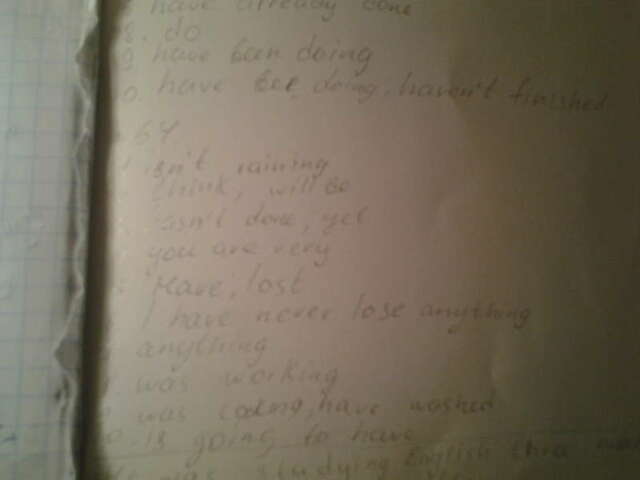 have already done
8. do
9. have been doing
0. have bee, doing, haven't finished
64
isn't raining
think, will be
hasn't done, yet
you are very
Have, lost
I have never lose anything
anything
was working
was cooking, have washed
10. is going to have
studying English